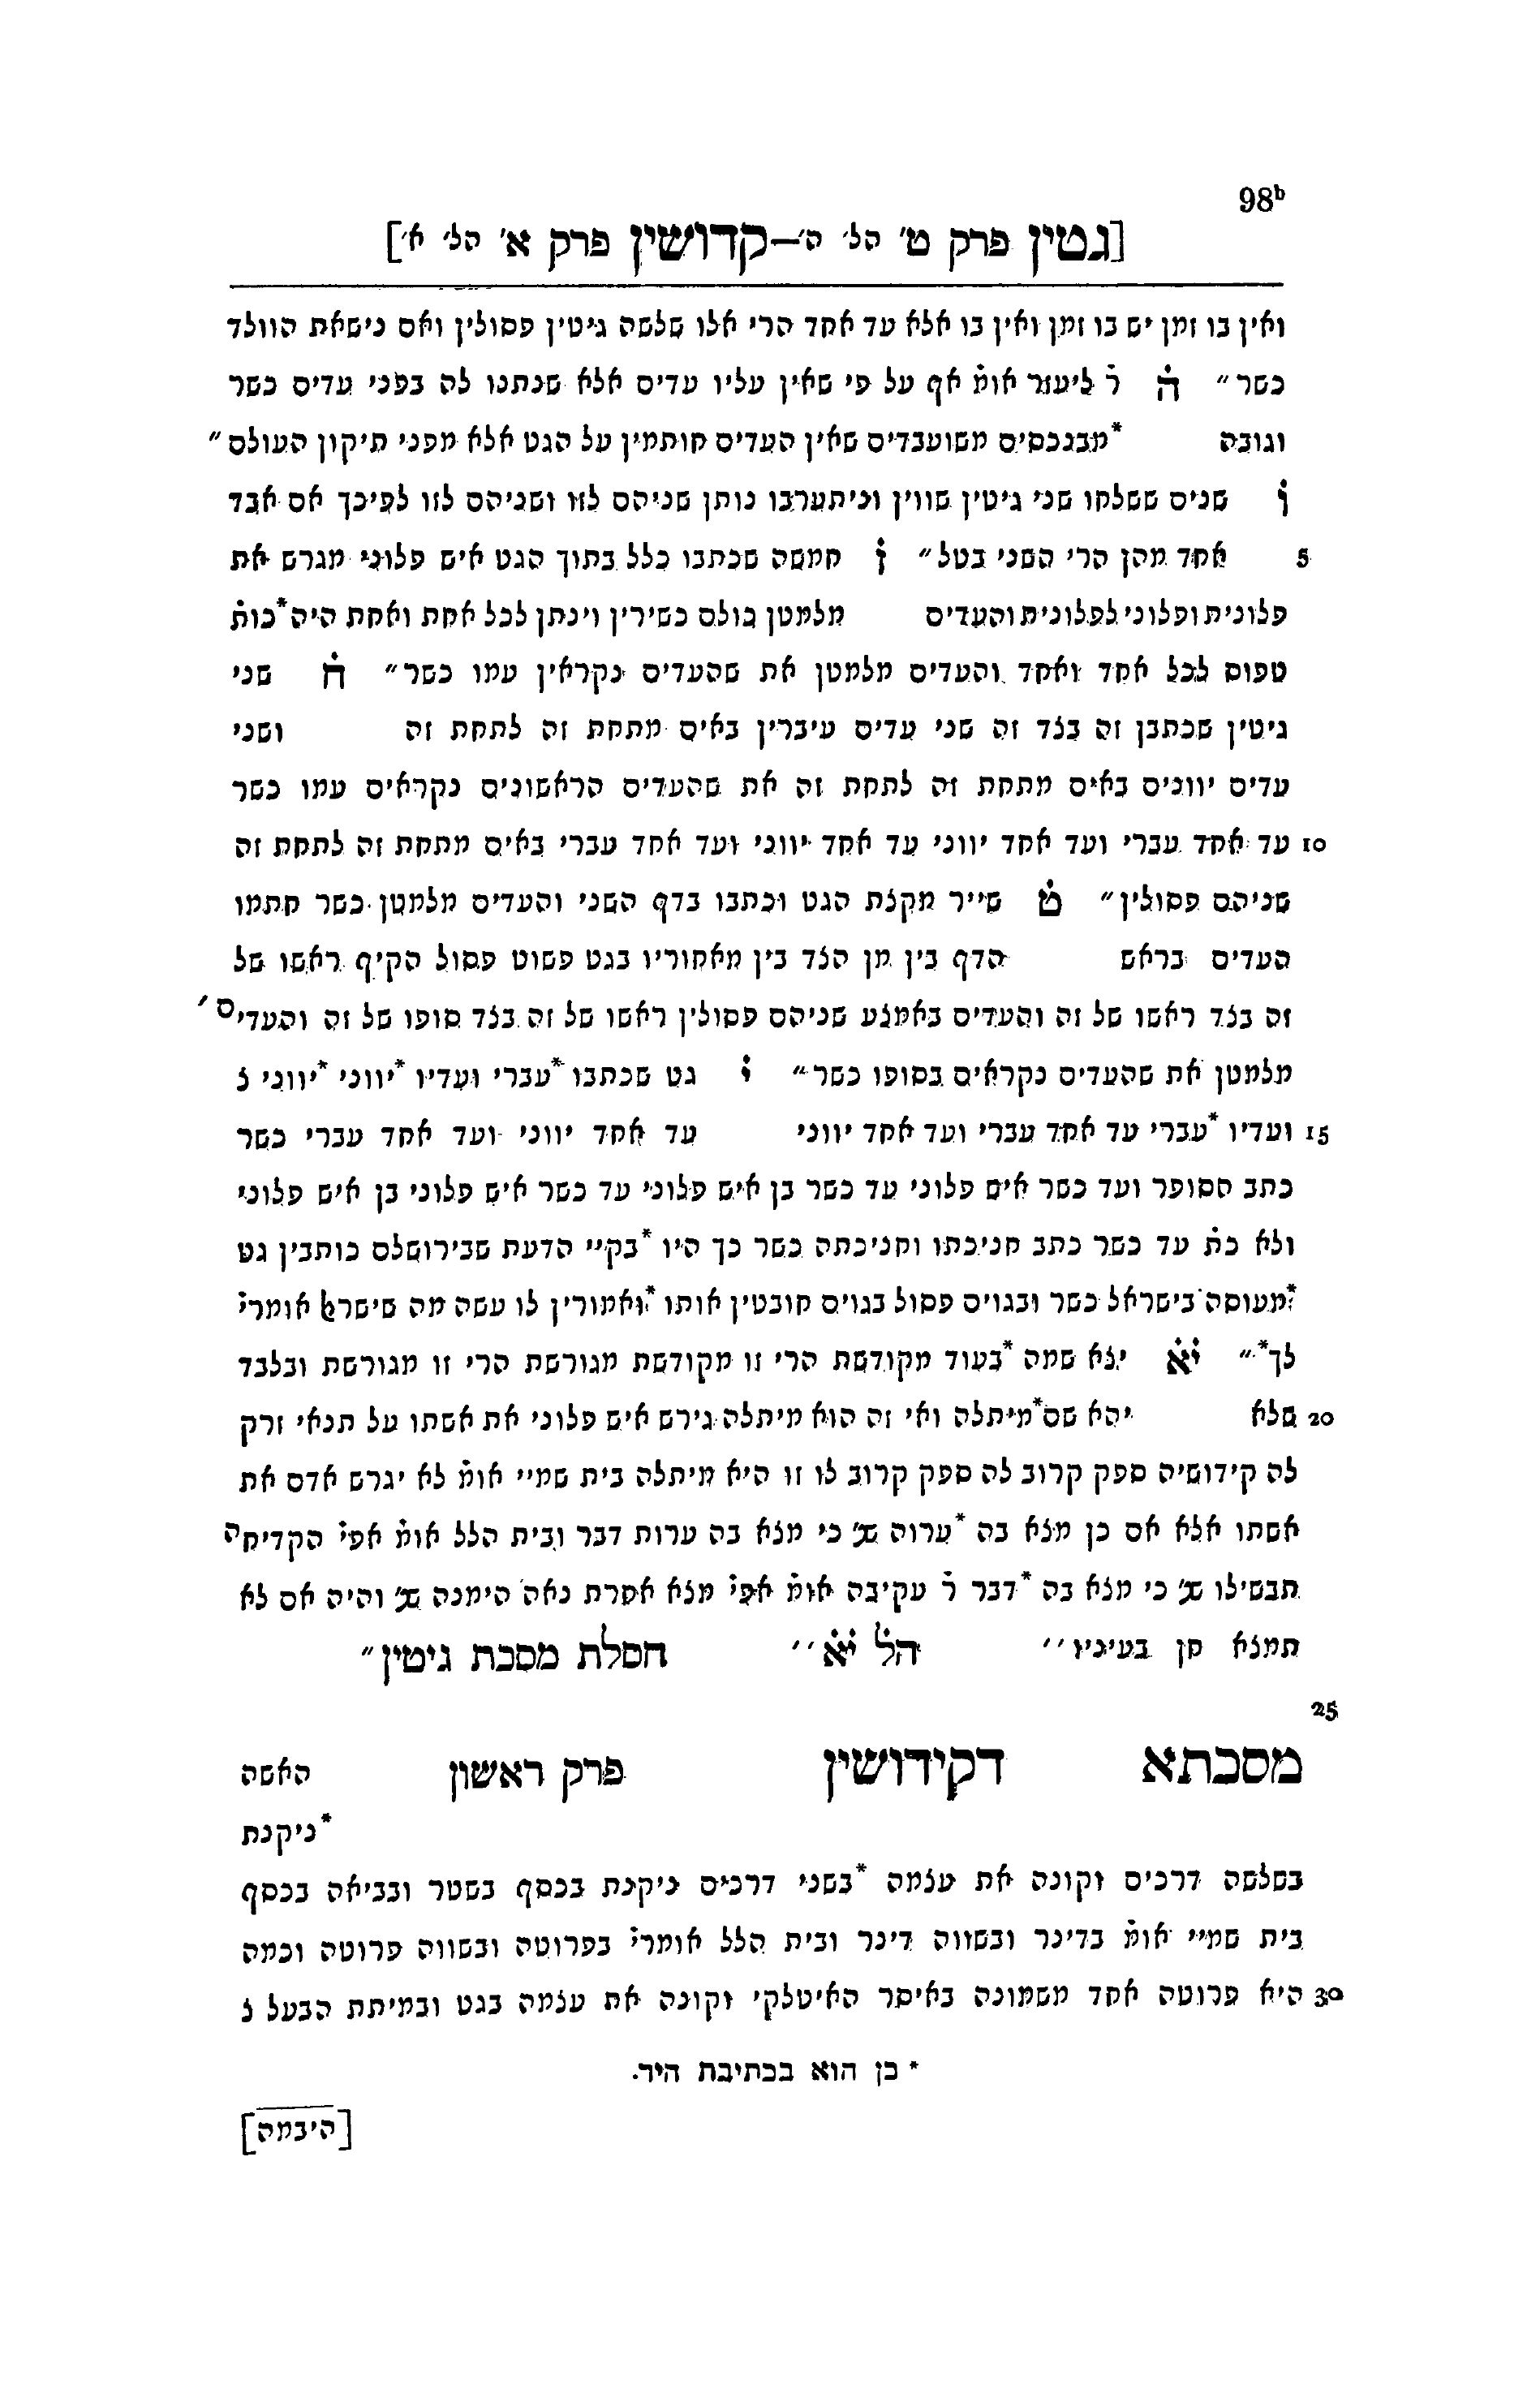 98ᵇ
[גטין פרק ט' הל' ה'—קדושין פרק א' הל' א']
ואין בו זמן יש בו זמן ואין בו אלא עד אחד הרי אלו שלשה גיטין פסולין ואם נישאת הוולד
כשר״ הׄ רׄ ליעזר אומׄ אף על פי שאין עליו עדים אלא שנתנו לה בפני עדים כשר
וגובה *מבנכסים משועבדים שאין העדים חותמין על הגט אלא מפני תיקון העולם״
וׄ שנים ששלחו שני גיטין שווין וניתערבו נותן שניהם לזו ושניהם לזו לפיכך אם אבד
5 אחד מהן הרי השני בטל״ זׄ חמשה שכתבו כלל בתוך הגט איש פלוני מגרש את
פלונית ופלוני לפלונית והעדים מלמטן כולם כשירין וינתן לכל אחת ואחת היה *כותׄ
טפוס לכל אחד ואחד והעדים מלמטן את שהעדים נקראין עמו כשר״ חׄ שני
גיטין שכתבן זה בצד זה שני עדים עיברין באים מתחת זה לתחת זה ושני
עדים יוונים באים מתחת זה לתחת זה את שהעדים הראשונים נקראים עמו כשר
10 עד אחד עברי ועד אחד יווני עד אחד יווני ועד אחד עברי באים מתחת זה לתחת זה
שניהם פסולין״ טׄ שייר מקצת הגט וכתבו בדף השני והעדים מלמטן כשר חתמו
העדים בראש הדף בין מן הצד בין מאחוריו בגט פשוט פסול הקיף ראשו של
זה בצד ראשו של זה והעדים באמצע שניהם פסולין ראשו של זה בצד סופו של זה והעדים'
מלמטן את שהעדים נקראים בסופו כשר״ יׄ גט שכתבו *עברי ועדיו *יווני *יווני צ
15 ועדיו *עברי עד אחד עברי ועד אחד יווני עד אחד יווני ועד אחד עברי כשר
כתב הסופר ועד כשר איש פלוני עד כשר בן איש פלוני עד כשר איש פלוני בן איש פלוני
ולא כתׄ עד כשר כתב חניכתו וחניכתה כשר כך היו *בקיי הדעת שבירושלם כותבין גט
*מעוסה בישראל כשר ובגוים פסול בגוים חובטין אותו *ואמורין לו עשה מה שישרﭏ אומריׄ
לך*״ יׄאׄ יצא שמה *בעוד מקודשת הרי זו מקודשת מגורשת הרי זו מגורשת ובלבד
20 שלא יהא שם *מיתלה ואי זה הוא מיתלה גירש איש פלוני את אשתו על תנאי זרק
לה קידושיה ספק קרוב לה ספק קרוב לו זו היא מיתלה בית שמיי אומׄ לא יגרש אדם את
אשתו אלא אם כן מצא בה *ערוה שנ' כי מצא בה ערות דבר ובית הלל אומׄ אפיׄ הקדיחה
תבשילו שנ' כי מצא בה *דבר רׄ עקיבה אומׄ אפיׄ מצא אחרת נאה הימנה שנ' והיה אם לא
תמצא חן בעיניו׳׳ הלׄ יׄאׄ׳׳ חסלת מסכת גיטין״
25
מסכתא דקידושין פרק ראשון האשה
*ניקנת
בשלשה דרכים וקונה את עצמה *בשני דרכים ניקנת בכסף בשטר ובביאה בכסף
בית שמיי אומׄ בדינר ובשווה דינר ובית הלל אומריׄ בפרוטה ובשווה פרוטה וכמה
30 היא פרוטה אחד משמונה באיסר האיטלקי וקונה את עצמה בגט ובמיתת הבעל צ
* כן הוא בכתיבת היד.
[היבמה]